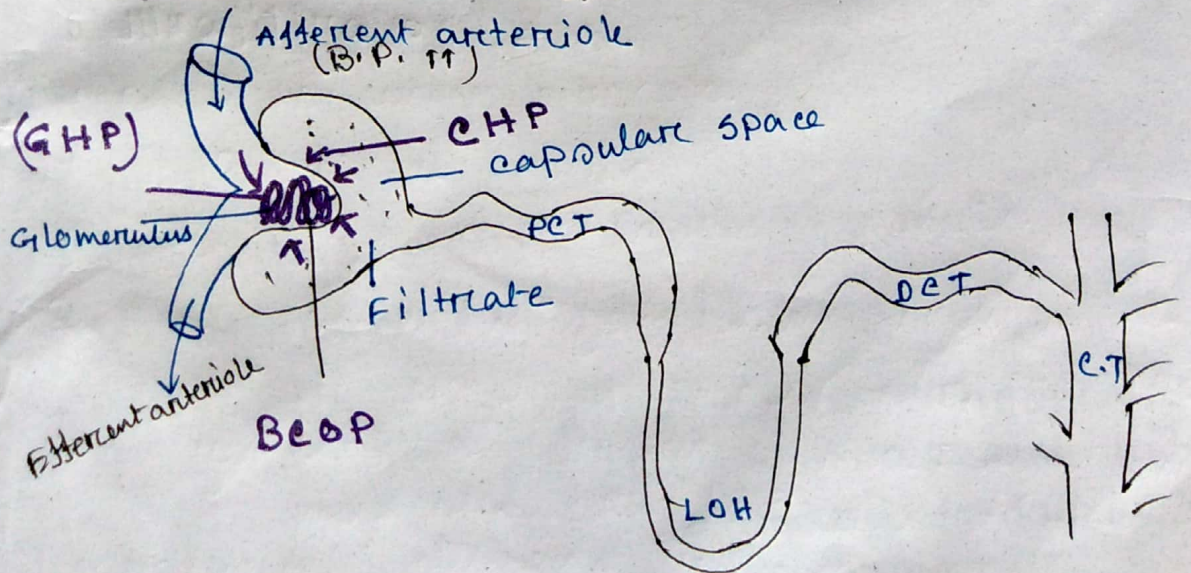 Afferent arteriole
(B.P. ↑↑)
(GHP)
CHP
capsular space
Glomerulus
PCT
Filtrate
DCT
C.T
Efferent arteriole
BCOP
LOH